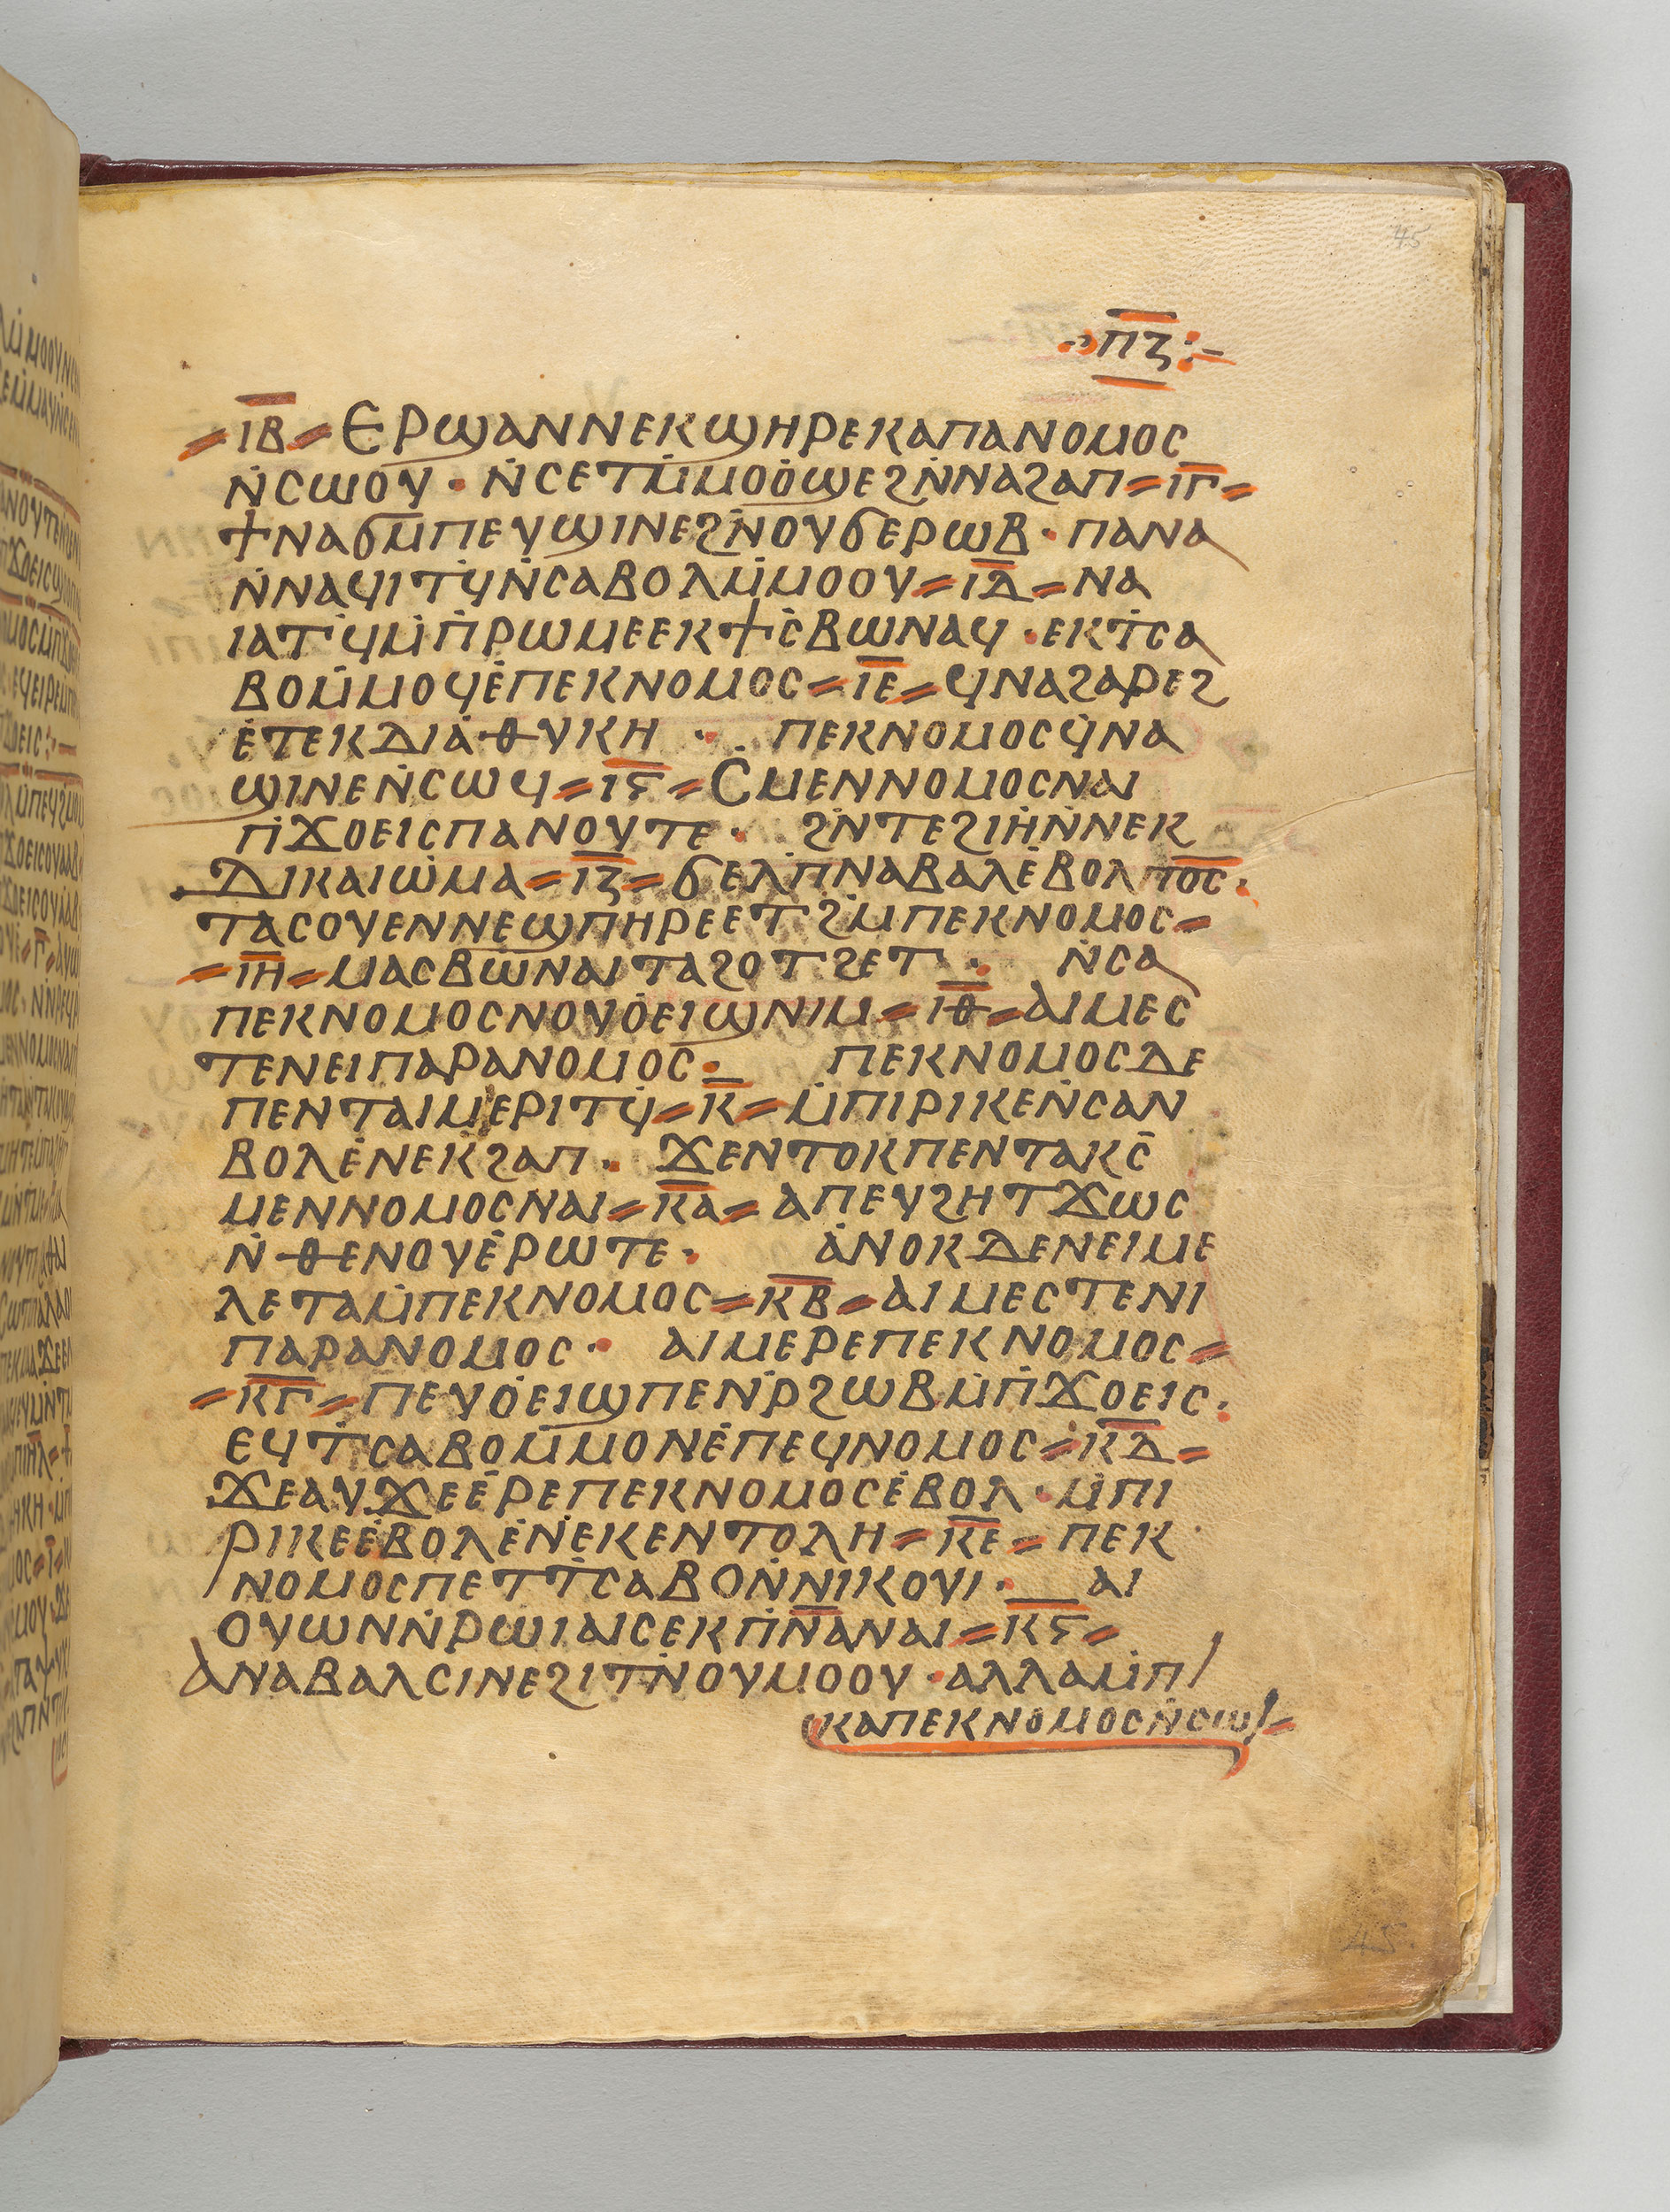 45
ⲡⲍ
ⲓⲃ̅ ⲉⲣϣⲁⲛⲛⲉⲕϣⲏⲣⲉⲕⲁⲡⲁⲛⲟⲙⲟⲥ
ⲛ̇ⲥⲱⲟⲩ · ⲛ̇ⲥⲉⲧⲙ̇ⲙⲟⲟϣⲉϩⲛ̇ⲛⲁϩⲁⲡ = ⲓⲅ̅ =
ϯⲛⲁϭⲙ̇ⲡⲉⲩϣⲓⲛⲉϩⲛ̇ⲟⲩϭⲉⲣⲱⲃ · ⲡⲁⲛⲁ
ⲛ̇ⲛⲁϥⲓⲧϥ̇ⲛ̇ⲥⲁⲃⲟⲗⲙ̇ⲙⲟⲟⲩ = ⲓⲇ̅ = ⲛⲁ
ⲓⲁⲧϥ̇ⲙ̇ⲡ̇ⲣⲱⲙⲉⲉⲕϯⲥ̇ⲃⲱⲛⲁϥ · ⲉⲕⲧ̇ⲥⲁ
ⲃⲟⲙ̇ⲙⲟϥⲉ̇ⲡⲉⲕⲛⲟⲙⲟⲥ = ⲓⲉ̅ = ϥⲛⲁϩⲁⲣⲉϩ
ⲉ̇ⲧⲉⲕⲇⲓⲁ̇ⲑⲩⲕⲏ · ⲡⲉⲕⲛⲟⲙⲟⲥϥ̇ⲛⲁ
ϣⲓⲛⲉⲛ̇ⲥⲱϥ = ⲓⲋ̅ = ⲥⲙⲉⲛⲛⲟⲙⲟⲥⲛⲁⲓ
ⲡ̇ϫⲟⲉⲓⲥⲡⲁⲛⲟⲩⲧⲉ · ϩⲛ̇ⲧⲉϩⲓⲏ̇ⲛ̇ⲛⲉⲕ
ⲇⲓⲕⲁⲓⲱ̇ⲙⲁ = ⲓⲍ̅ = ϭⲉⲗⲡ̇ⲛⲁⲃⲁⲗⲉ̇ⲃⲟⲗⲡⲟ̅ⲥ̅ ·
ⲧⲁⲥⲟⲩⲉⲛⲛⲉϣⲡⲏⲣⲉⲉⲧϩⲙ̇ⲡⲉⲕⲛⲟⲙⲟⲥ =
= ⲓⲏ̅ = ⲙⲁⲥⲃⲱⲛⲁⲓⲧⲁϩⲟⲧϩⲉⲧ · ⲛ̇ⲥⲁ
ⲡⲉⲕⲛⲟⲙⲟⲥⲛⲟⲩⲟ̇ⲉⲓϣⲛⲓⲙ = ⲓⲑ̅ = ⲁⲓⲙⲉⲥ
ⲧⲉⲛⲉⲓⲡⲁⲣⲁⲛⲟⲙⲟⲥ · ⲡⲉⲕⲛⲟⲙⲟⲥⲇⲉ
ⲡⲉⲛⲧⲁⲓⲙⲉⲣⲓⲧϥ̇ = ⲕ̅ = ⲙ̇ⲡⲓⲣⲓⲕⲉⲛ̇ⲥⲁⲛ
ⲃⲟⲗⲉ̇ⲛⲉⲕϩⲁⲡ · ϫⲉⲛⲧⲟⲕⲡⲉⲛⲧⲁⲕⲥ̇
ⲙⲉⲛⲛⲟⲙⲟⲥⲛⲁⲓ = ⲕⲁ̅ = ⲁⲡⲉⲩϩⲏⲧϫⲱⲥ
ⲛ̇ⲑⲉⲛⲟⲩⲉ̇ⲣⲱⲧⲉ · ⲁ̇ⲛⲟⲕⲇⲉⲛⲉⲓⲙⲉ
ⲗⲉⲧⲁⲙ̇ⲡⲉⲕⲛⲟⲙⲟⲥ = ⲕⲃ̅ = ⲁⲓⲙⲉⲥⲧⲉⲛⲓ
ⲡⲁⲣⲁⲛⲟⲙⲟⲥ · ⲁⲓⲙⲉⲣⲉⲡⲉⲕⲛⲟⲙⲟⲥ =
= ⲕⲅ̅ = ⲡⲉⲩⲟ̇ⲉⲓϣⲡⲉⲛ̇ⲣ̇ϩⲱⲃⲙ̇ⲡ̇ϫⲟⲉⲓⲥ ·
ⲉϥⲧ̇ⲥⲁⲃⲟⲙ̇ⲙⲟⲛⲉ̇ⲡⲉϥⲛⲟⲙⲟⲥ = ⲕⲇ̅ =
ϫⲉⲁⲩϫⲉⲉ̇ⲣⲉⲡⲉⲕⲛⲟⲙⲟⲥⲉ̇ⲃⲟⲗ · ⲙ̇ⲡⲓ
ⲣⲓⲕⲉⲉ̇ⲃⲟⲗⲉ̇ⲛⲉⲕⲉⲛⲧⲟⲗⲏ = ⲕⲉ̅ = ⲡⲉⲕ
ⲛⲟⲙⲟⲥⲡⲉⲧⲧ̇ⲥⲁⲃⲟⲛ̇ⲛⲓⲕⲟⲩⲓ · ⲁⲓ
ⲟⲩⲱⲛⲛ̇ⲣⲱⲓⲁⲓⲥⲉⲕⲡ̇ⲛ̅ⲁ̅ⲛⲁⲓ = ⲕⲋ̅ =
ⲁⲛⲁⲃⲁⲗⲥⲓⲛⲉϩⲓⲧⲛ̇ⲟⲩⲙⲟⲟⲩ · ⲁⲗⲗⲁⲙ̇ⲡ/
ⲕⲁⲡⲉⲕⲛⲟⲙⲟⲥⲛ̇ⲥⲱ/ =
45.